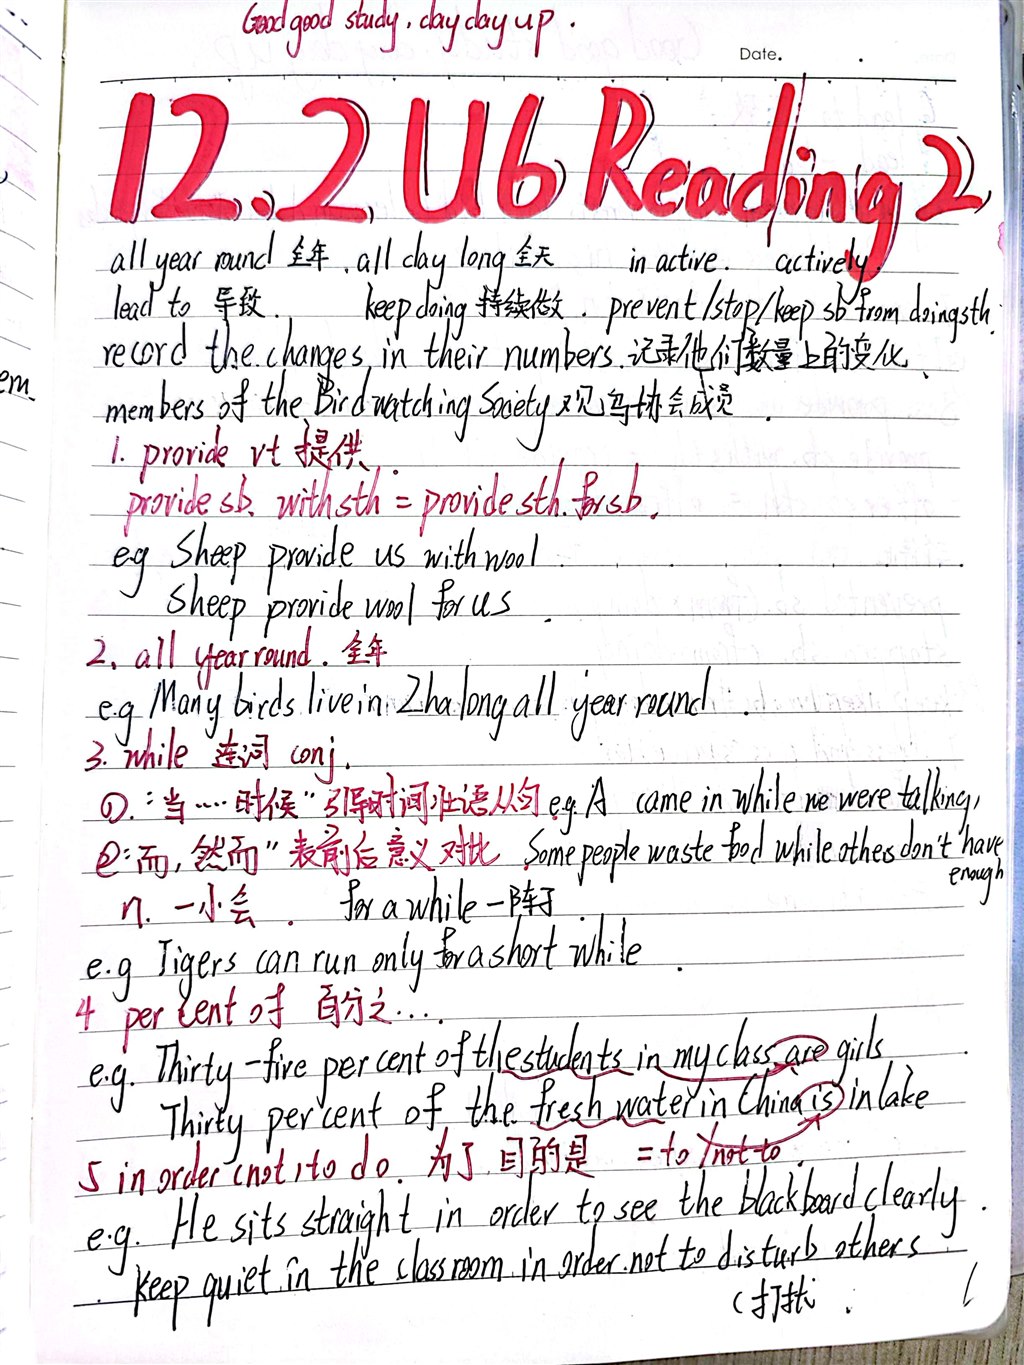 Good good study, day day up.
Date.
12.2 U6 Reading 2
all year round 全年. all day long 全天 in active. actively
lead to 导致. keep doing 持续做. prevent/stop/keep sb from doing sth.
record the changes in their numbers. 记录他们数量上的变化、
em.
members of the Birdwatching Society 观鸟协会成员.
1. provide vt 提供.
provide sb. with sth = provide sth. for sb.
e.g Sheep provide us with wool
Sheep provide wool for us.
2. all year round. 全年
e.g Many birds live in Zhalong all year round.
3. while 连词 conj.
①. "当……时候" 引导时间状语从句 e.g. A came in while we were talking,
②"而, 然而" 表前后意义对比 Some people waste food while others don't have
enough
n. 一小会. for a while 一阵子
e.g Tigers can run only for a short while.
4 per cent of 百分之….
e.g. Thirty-five per cent of the students in my class are girls.
Thirty per cent of the fresh water in China is in lake
5 in order (not) to do. 为了 目的是 = to / not to.
e.g. He sits straight in order to see the blackboard clearly.
keep quiet in the classroom in order not to disturb others.
(打扰.